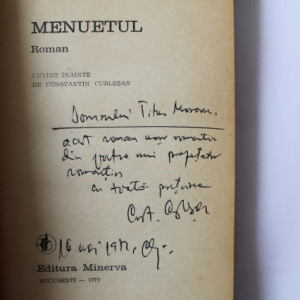 MENUETUL
Roman
CUVÎNT ÎNAINTE
DE CONSTANTIN CUBLEȘAN
Domnului Titus Moraru,
acest roman
din partea unui prefațator
romantic
cu toată prețuirea
16 noi 1972, Cj.
Editura Minerva
BUCUREȘTI — 1972